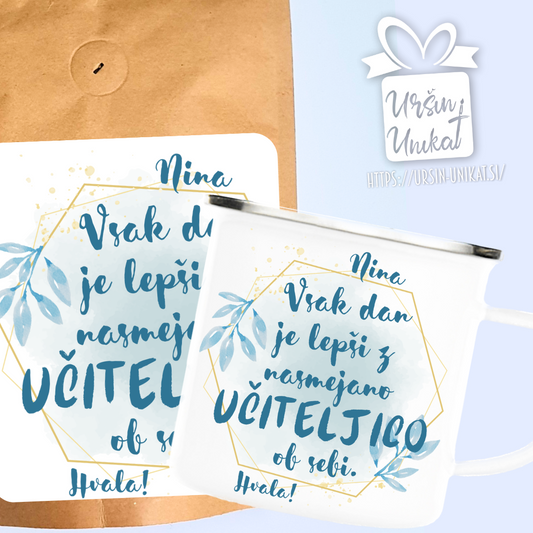 Uršin
Unikat
HTTPS://URSIN-UNIKAT.SI/
Nina
Vsak dan
je lepši
nasmej
UČITELJ
ob se
Hvala!
Nina
Vsak dan
je lepši z
nasmejano
UČITELJICO
ob sebi.
Hvala!